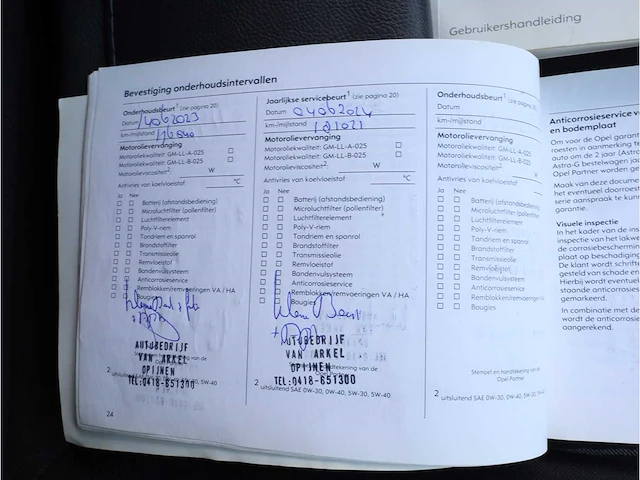 Gebruikershandleiding
Bevestiging onderhoudsintervallen
Onderhoudsbeurt¹ (zie pagina 20)
Datum
km-/mijlstand
Motorolievervanging
Motoroliekwaliteit: GM-LL-A-025
Motoroliekwaliteit: GM-LL-B-025
Motorolieviscositeit²: W
Antivries van koelvloeistof °C
Ja Nee
Batterij (afstandsbediening)
Microluchtfilter (pollenfilter)
Luchtfilterelement
Poly-V-riem
Tandriem en spanrol
Brandstoffilter
Transmissieolie
Remvloeistof
Bandenvulsysteem
Anticorrosieservice
Remblokken/remvoeringen VA / HA
Bougies
AUTOBEDRIJF
VAN ARKEL
OPIJNEN
TEL:0418-651300
2
24
Jaarlijkse servicebeurt¹ (zie pagina 20)
Datum 04062024
km-/mijlstand 121021
Motorolievervanging
Motoroliekwaliteit: GM-LL-A-025
Motoroliekwaliteit: GM-LL-B-025
Motorolieviscositeit²: W
Antivries van koelvloeistof °C
Ja Nee
Batterij (afstandsbediening)
Microluchtfilter (pollenfilter)
Luchtfilterelement
Poly-V-riem
Tandriem en spanrol
Brandstoffilter
Transmissieolie
Remvloeistof
Bandenvulsysteem
Anticorrosieservice
Remblokken/remvoeringen VA / HA
Bougies
AUTOBEDRIJF
VAN ARKEL
OPIJNEN
TEL:0418-651300
2 uitsluitend SAE 0W-30, 0W-40, 5W-30, 5W-40
Onderhoudsbeurt¹ (zie pagina
Datum
km-/mijlstand
Motorolievervanging
Motoroliekwaliteit: GM-LL-A-025
Motoroliekwaliteit: GM-LL-B-025
Motorolieviscositeit²:
Antivries van koelvloeistof
Ja Nee
Batterij (afstandsbediening)
Microluchtfilter (pollenfilter)
Luchtfilterelement
Poly-V-riem
Tandriem en spanrol
Brandstoffilter
Transmissieolie
Remvloeistof
Bandenvulsysteem
Anticorrosieservice
Remblokken/remvoeringen
Bougies
Stempel en handtekening van de
Opel Partner
2 uitsluitend SAE 0W-30, 0W-40, 5W-30,
Anticorrosieservice
en bodemplaat
Om voor de Opel garantie
roesten in aanmerking te
auto om de 2 jaar (Astra
Astra-G bestelwagen
Opel Partner worden
Maak van deze
het eventueel doorroesten
serie aanspraak te kunnen
garantie.
Visuele inspectie
In het kader van de
inspectie van het
de corrosiebescherming
plaat op beschadiging
De klant wordt
gesteld van schade en
Hierbij wordt eventueel
staande anticorrosieservice
gemarkeerd.
In combinatie met de
wordt de anticorrosie
aangerekend.